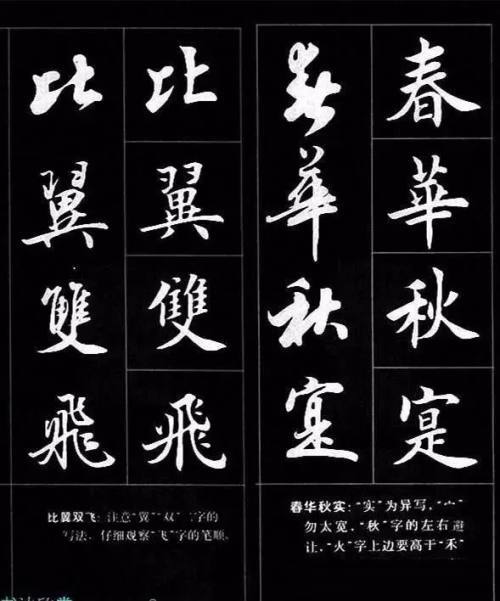 春華秋寔
春華秋寔
春华秋实:“实”为异写,“宀”
勿太宽,“秋”字的左右避
让,“火”字上边要高于“禾”
比翼雙飛
比翼雙飛
比翼双飞:注意“翼”“双”二字的
写法,仔细观察“飞”字的笔顺。